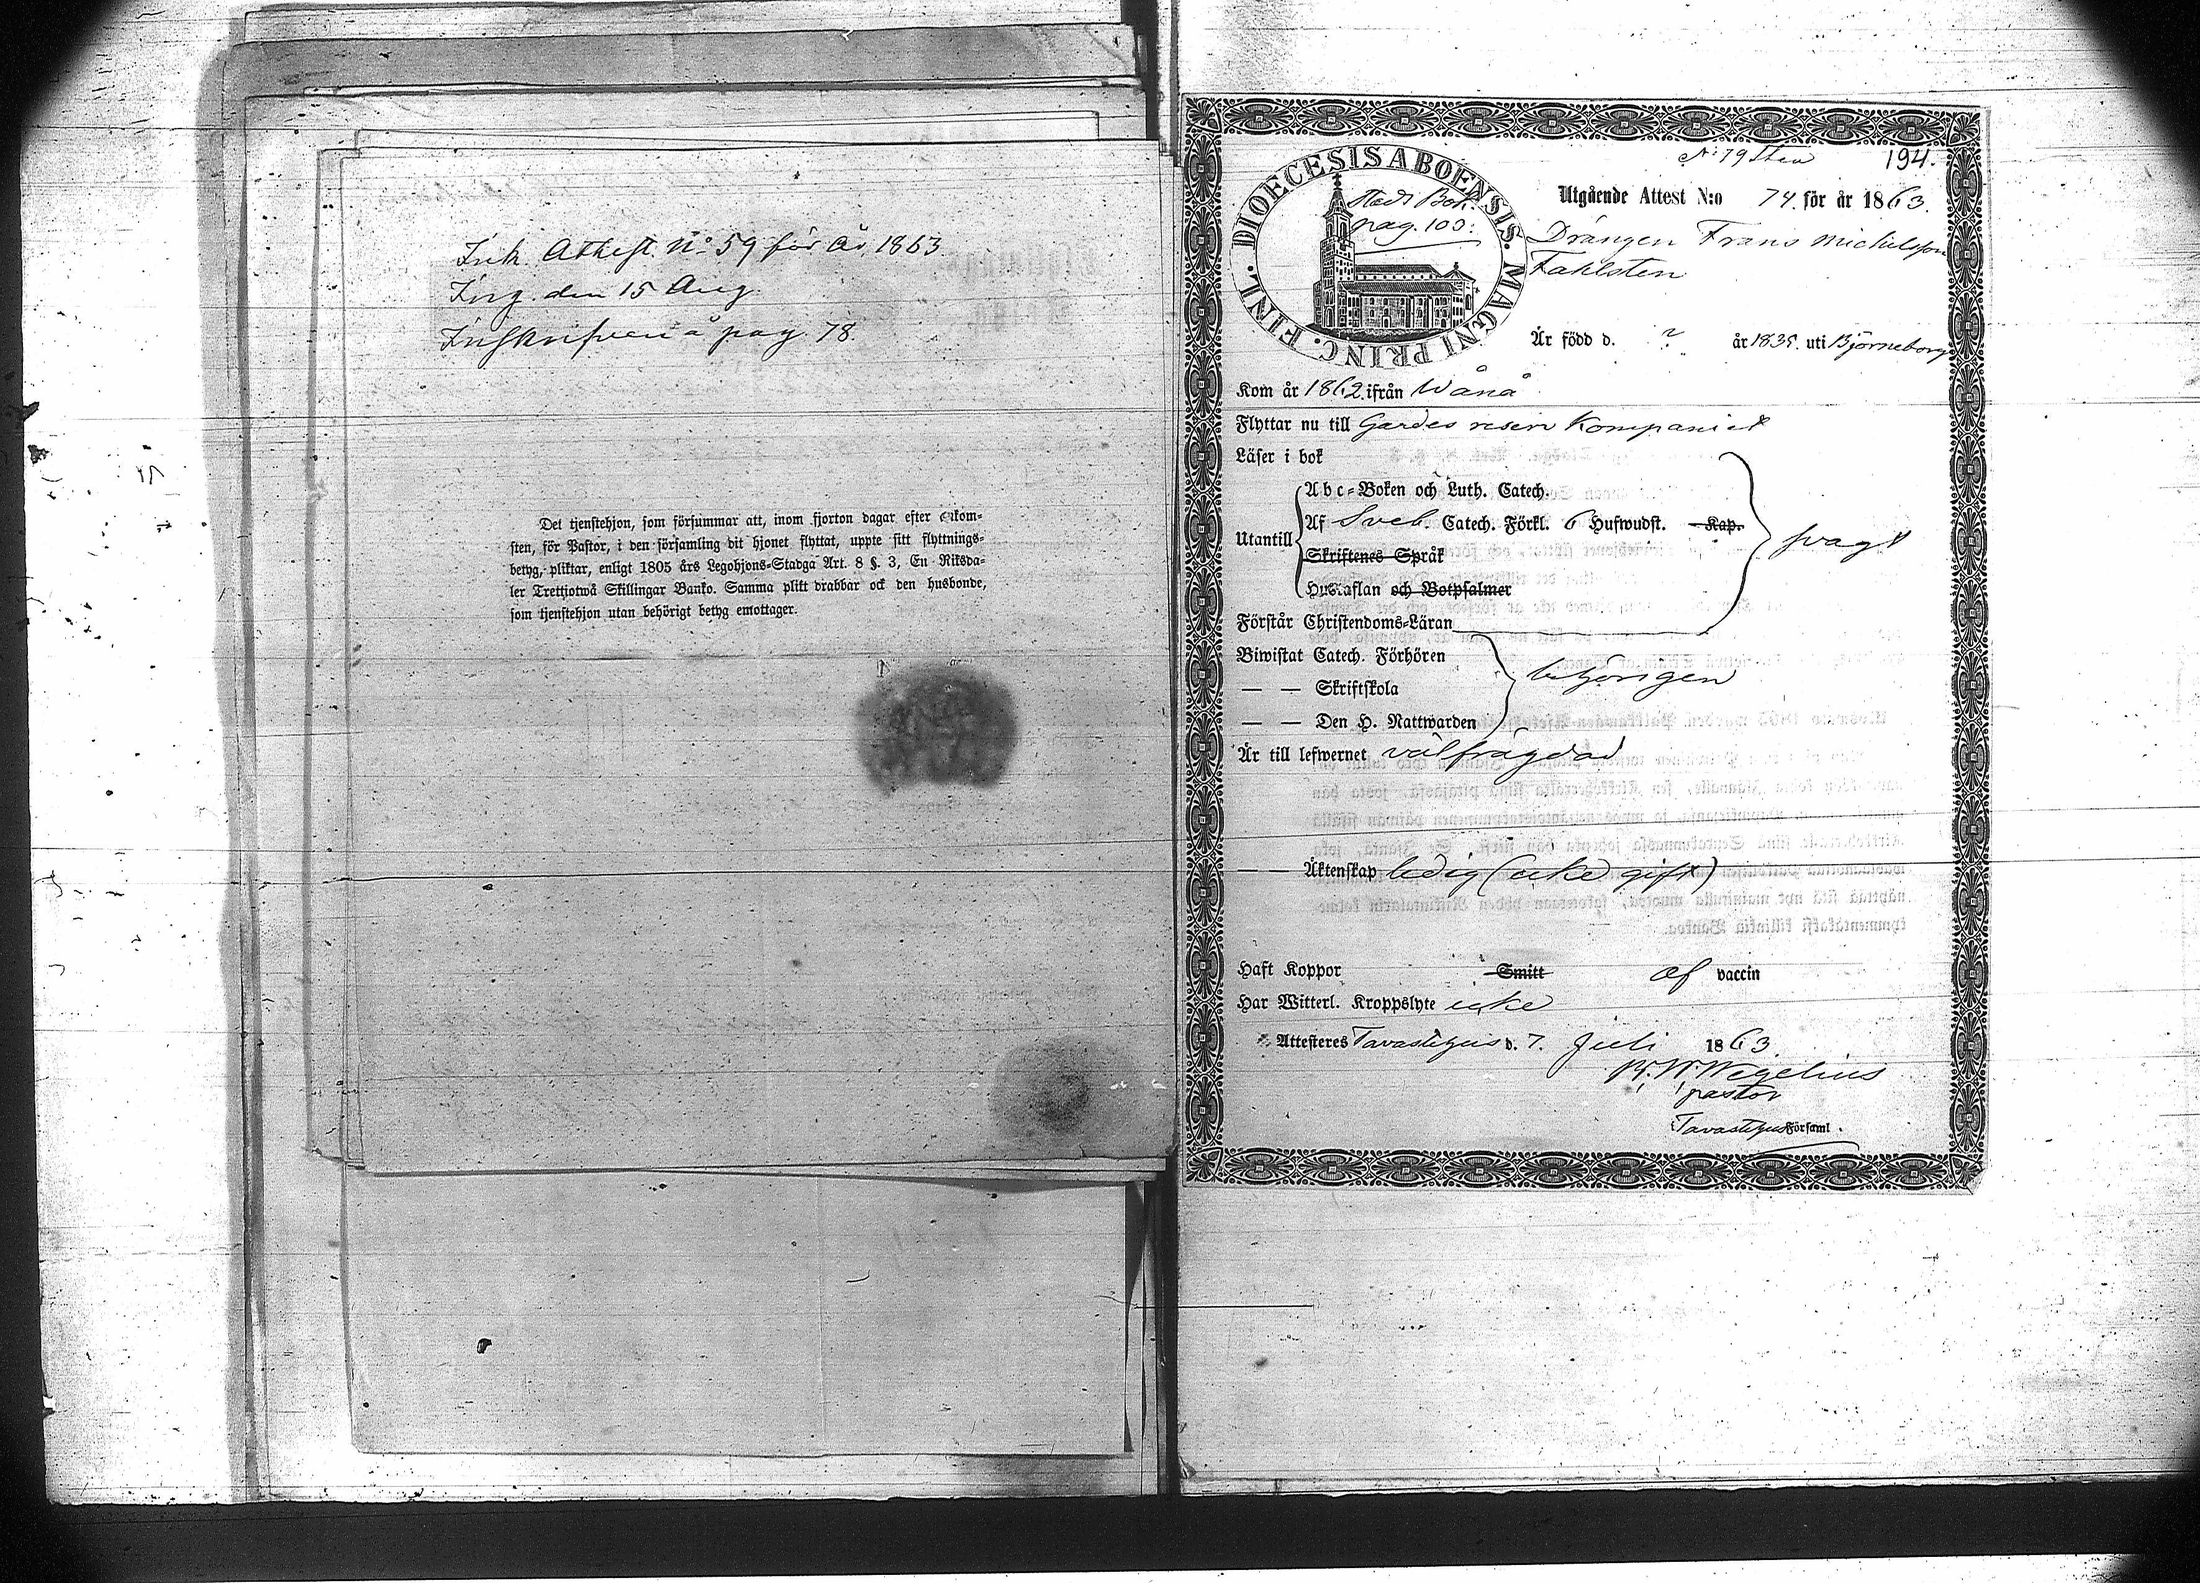 Ink. Attest. N:o 59 för år 1863
Ing. den 15 Aug.
Inskrifven å pag. 78.
Det tjenstehjon, som försummar att, inom fjorton dagar efter ankom-
sten, för Pastor, i den församling dit hjonet flyttat, uppte sitt flyttnings-
betyg, pliktar, enligt 1805 års Legohjons-Stadga Art. 8 §. 3, En Riksda-
ler Trettjotwå Skillingar Banko. Samma plikt drabbar ock den husbonde,
som tjenstehjon utan behörigt betyg emottager.
194.
DIOECESIS ABOENSIS. MAGNI PRINC. FINL.
pag. 103:
Utgående Attest N:o 74. för år 1863.
Drängen Frans Michelsson
Fahlsten
Är född d. ? år 1835. uti Björneborg
Kom år 1862. ifrån Wånå
Flyttar nu till Gardes reserv Kompaniet
Läser i bok
Utantill
Abc-Boken och Luth. Catech.
Af Sveb. Catech. Förkl. 6 Hufwudst. Kap.
Skriftenes Språk
Hustaflan och Botpsalmer
svagt
Förstår Christendoms-Läran
Biwistat Catech. Förhören
— — Skriftskola
— — Den H. Nattwarden
behörigen
Är till lefwernet välfrägdad
— — Äktenskap ledig (icke gift)
Haft Koppor Smitt af vaccin
Har Witterl. Kroppslyte icke
Attesteres Tavastehus d. 7. Juli 1863
Wegelius
pastor
Tavastehus Församl.